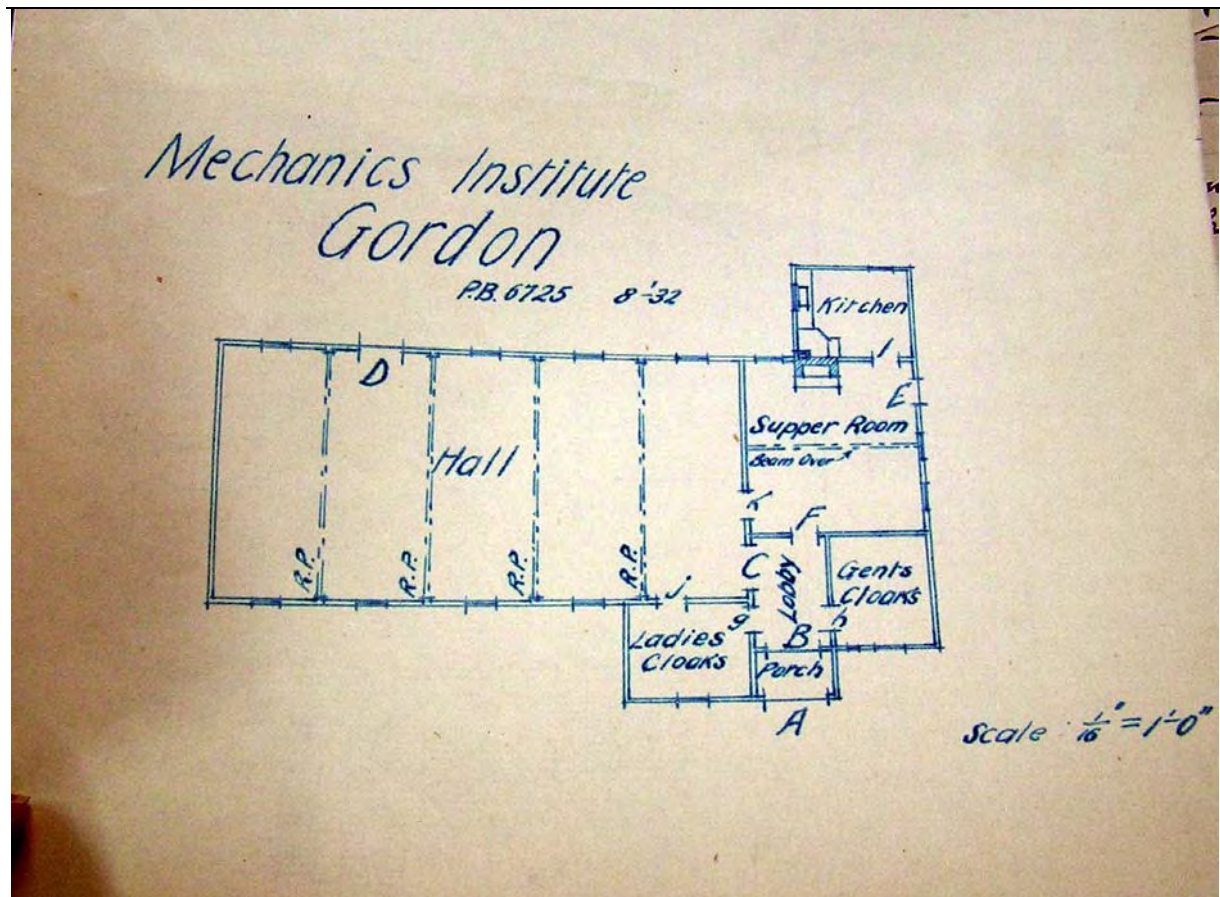 Mechanics Institute
Gordon
P.B. 6725 8-'32
Kitchen
I
D
E
Supper Room
Beam Over
Hall
K
F
R.P.
R.P.
R.P.
R.P.
C
Lobby
Gents
Cloaks
J
g
h
B
Ladies
Cloaks
Porch
A
Scale : 1/16" = 1'-0"